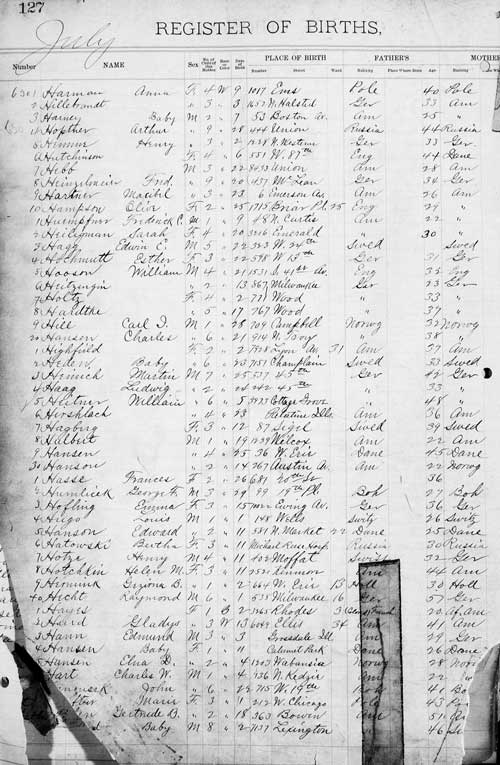 127
REGISTER OF BIRTHS,
July
PLACE OF BIRTH FATHER'S MOTHER
Number NAME Sex Number Street Ward Nativity Place Where Born Age Nativity
Harmon Anna F 4 W 9 1017 Ems Pole 40 Pole
2 Hillebrandt " 3 " 3 1652 N. Halsted Ger 33 Am
3 Harney Baby M 2 " 7 53 Boston Av. Am 25 "
4 Hopther Arthur " 9 " 28 444 Union Russia 44 Russia
5 Henry " 3 " 2 1228 N. Western Ger 33 Ger
6 Hutchinson F 4 " 6 551 W. 87th Eng 44 Dane
7 Hebb M 3 " 22 Union Am 28 Am
8 Fred. " 9 " 20 1437 McLean Ger 34 Ger
9 Hartner " 3 " 23 Emerson Av. Am 26 Am
10 Hampson F 2 " 25 1715 Briar Pl. 25 Eng 29 "
1 Frederick C. M 1 " 9 48 N. Curtis Am 22 "
2 Heiligman Sarah F 4 " 20 3216 Emerald " 30 "
3 Hagg Edwin E. M 5 " 22 323 W. 24th Swed Swed
4 Hochmutt Esther F 3 " 22 598 W. 15th Ger 31 Ger
5 Hooson William M 4 " 21 1531 S. 41st Av. Eng 35 Eng
6 " 2 " 13 867 Milwaukee Ger 23 Ger
7 Holtz F 4 " 2 771 Wood " 33 "
8 " 5 " 17 767 Wood " 37 "
9 Hill Carl I. M 1 " 25 709 Campbell Norwg 32 Norwg
20 Hansen Charles " 6 " 21 914 N. Troy " 38 "
1 Highfield F 2 " 2 7828 Lyon Av. 31 Am 27 Am
2 Baby " 6 " 23 7151 Champlain Swed 33 Swed
3 Heinrich Martin M 7 " 25 537 45th Ger 42 Ger
4 Haag Ludwig " 2 " 24 242 45th " 33
5 Heitner William " 6 " 5 3923 Cottage Grove " 48 "
6 Hirshlach " 4 " 23 Palatine Ills. Am 36 Am
7 Hagberg F 3 " 12 87 Sigel Swed 39 Swed
8 Halbert M 1 " 19 1239 Wilcox Am 22 Am
9 Hansen " 4 " 25 36 W. Erie Dane 45 Dane
30 Hanson " 2 " 14 267 Austin Av. Am 22 Norwg
1 Hasse Frances F 2 " 26 681 20th St 36
2 George F. M 3 " 29 99 19th Pl. Boh 27 Boh
3 Hofling Emma F 3 " 15 Ewing Av. Ger 36 Ger
4 Hugo Louis M 1 " 1 148 Wells Switz 26 Switz
5 Hanson Edward " 2 " 11 581 N. Market 22 Dane 25 Dane
6 Hatowski Bertha F 3 " 11 Michael Reese Hosp. Russia 30 Russia
7 Hotz Henry M 4 " 11 402 Moffat Switz 32 Ger
8 Hotchkin Helen M. F 3 " 11 Lennon Am 44 Can
9 B. " 2 " 2 664 W. Erie 13 Holl 30 Holl
40 Hecht Raymond M 6 " 1 538 Milwaukee 16 Ger 57 Ger
1 Hayes F 1 C 2 Rhodes 3 20 Af. Am
2 Heird Gladys " 3 W 13 6049 Ellis 34 Am 41 Am
3 Hann Edmund M 3 " 3 Grossdale Ill. Am 29 Ger
4 Hansen Baby F 1 " 11 Calumet Park Dane 26 Dane
Hansen Elna D. " 2 " 4 1203 Wabansia Norwg 28
Hart Charles W. M 1 " 4 936 N. Kedzie Am 22
John " 6 " 22 715 W. 19th Boh 41
Marie F 3 " 1 212 W. Chicago Pole 43
Gertrude B. " 2 " 18 363 Bowen Am 51
Baby M 8 " 2 7137 Lexington " 46